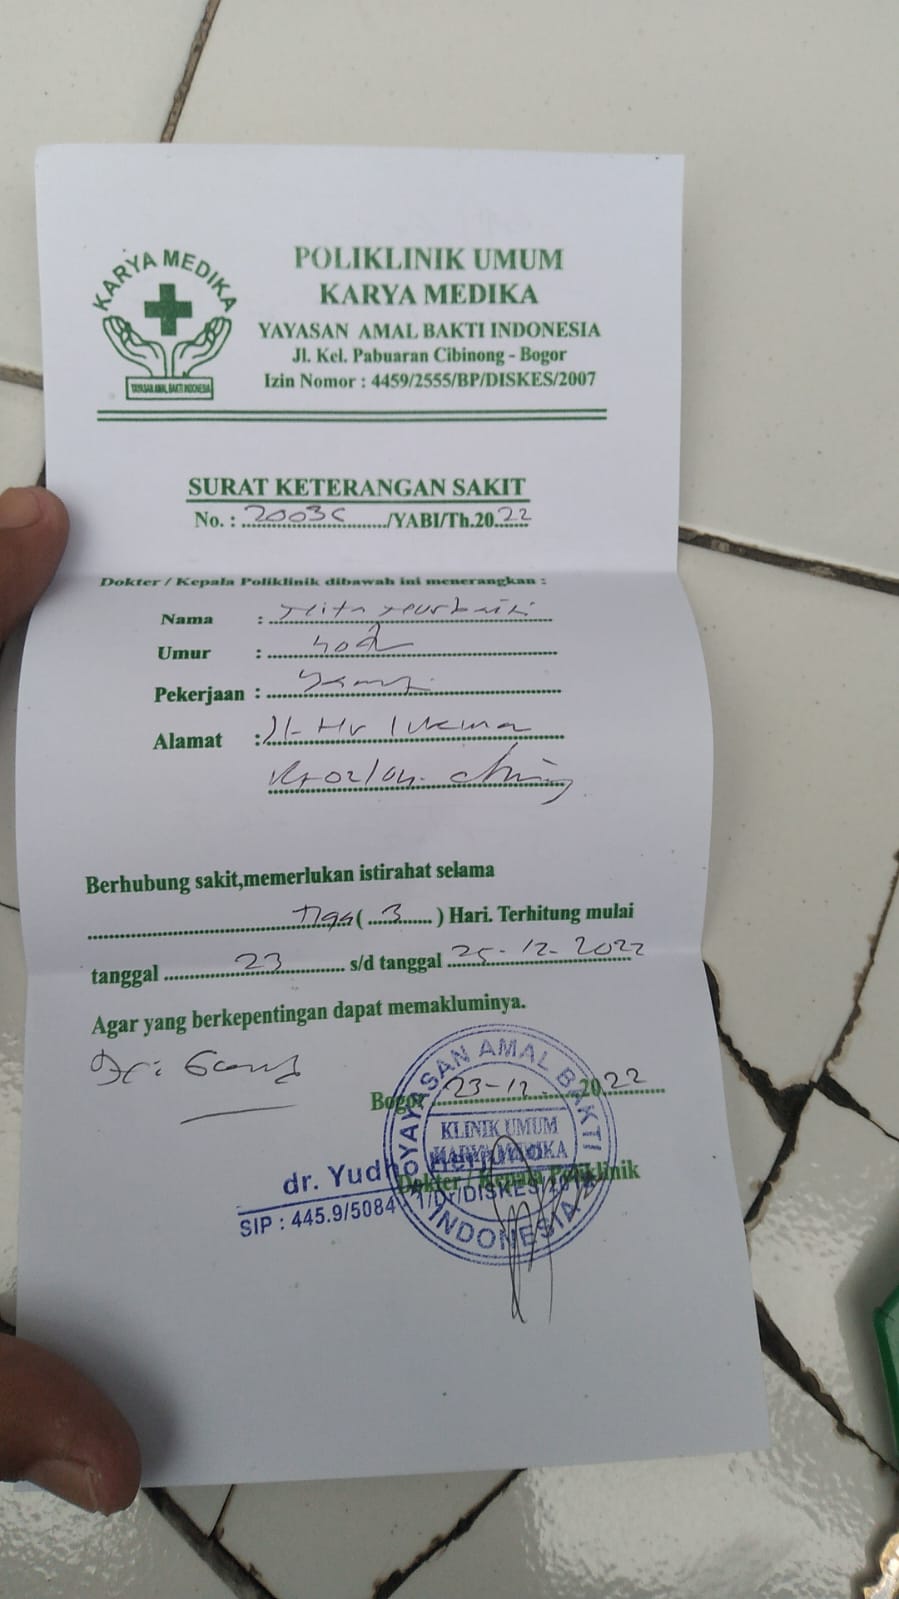 KARYA MEDIKA
YAYASAN AMAL BAKTI INDONESIA
POLIKLINIK UMUM
KARYA MEDIKA
YAYASAN AMAL BAKTI INDONESIA
Jl. Kel. Pabuaran Cibinong - Bogor
Izin Nomor : 4459/2555/BP/DISKES/2007
SURAT KETERANGAN SAKIT
No. : /YABI/Th.2022
Dokter / Kepala Poliklinik dibawah ini menerangkan :
Nama :
Umur :
Pekerjaan :
Alamat :
Berhubung sakit,memerlukan istirahat selama
Tiga (3) Hari. Terhitung mulai
tanggal 23 s/d tanggal 25-12-2022
Agar yang berkepentingan dapat memakluminya.
Bogor 23-12 2022
Dokter / Kepala Poliklinik
YAYASAN AMAL BAKTI INDONESIA
KLINIK UMUM
KARYA MEDIKA
dr.
SIP : 445.9/5084